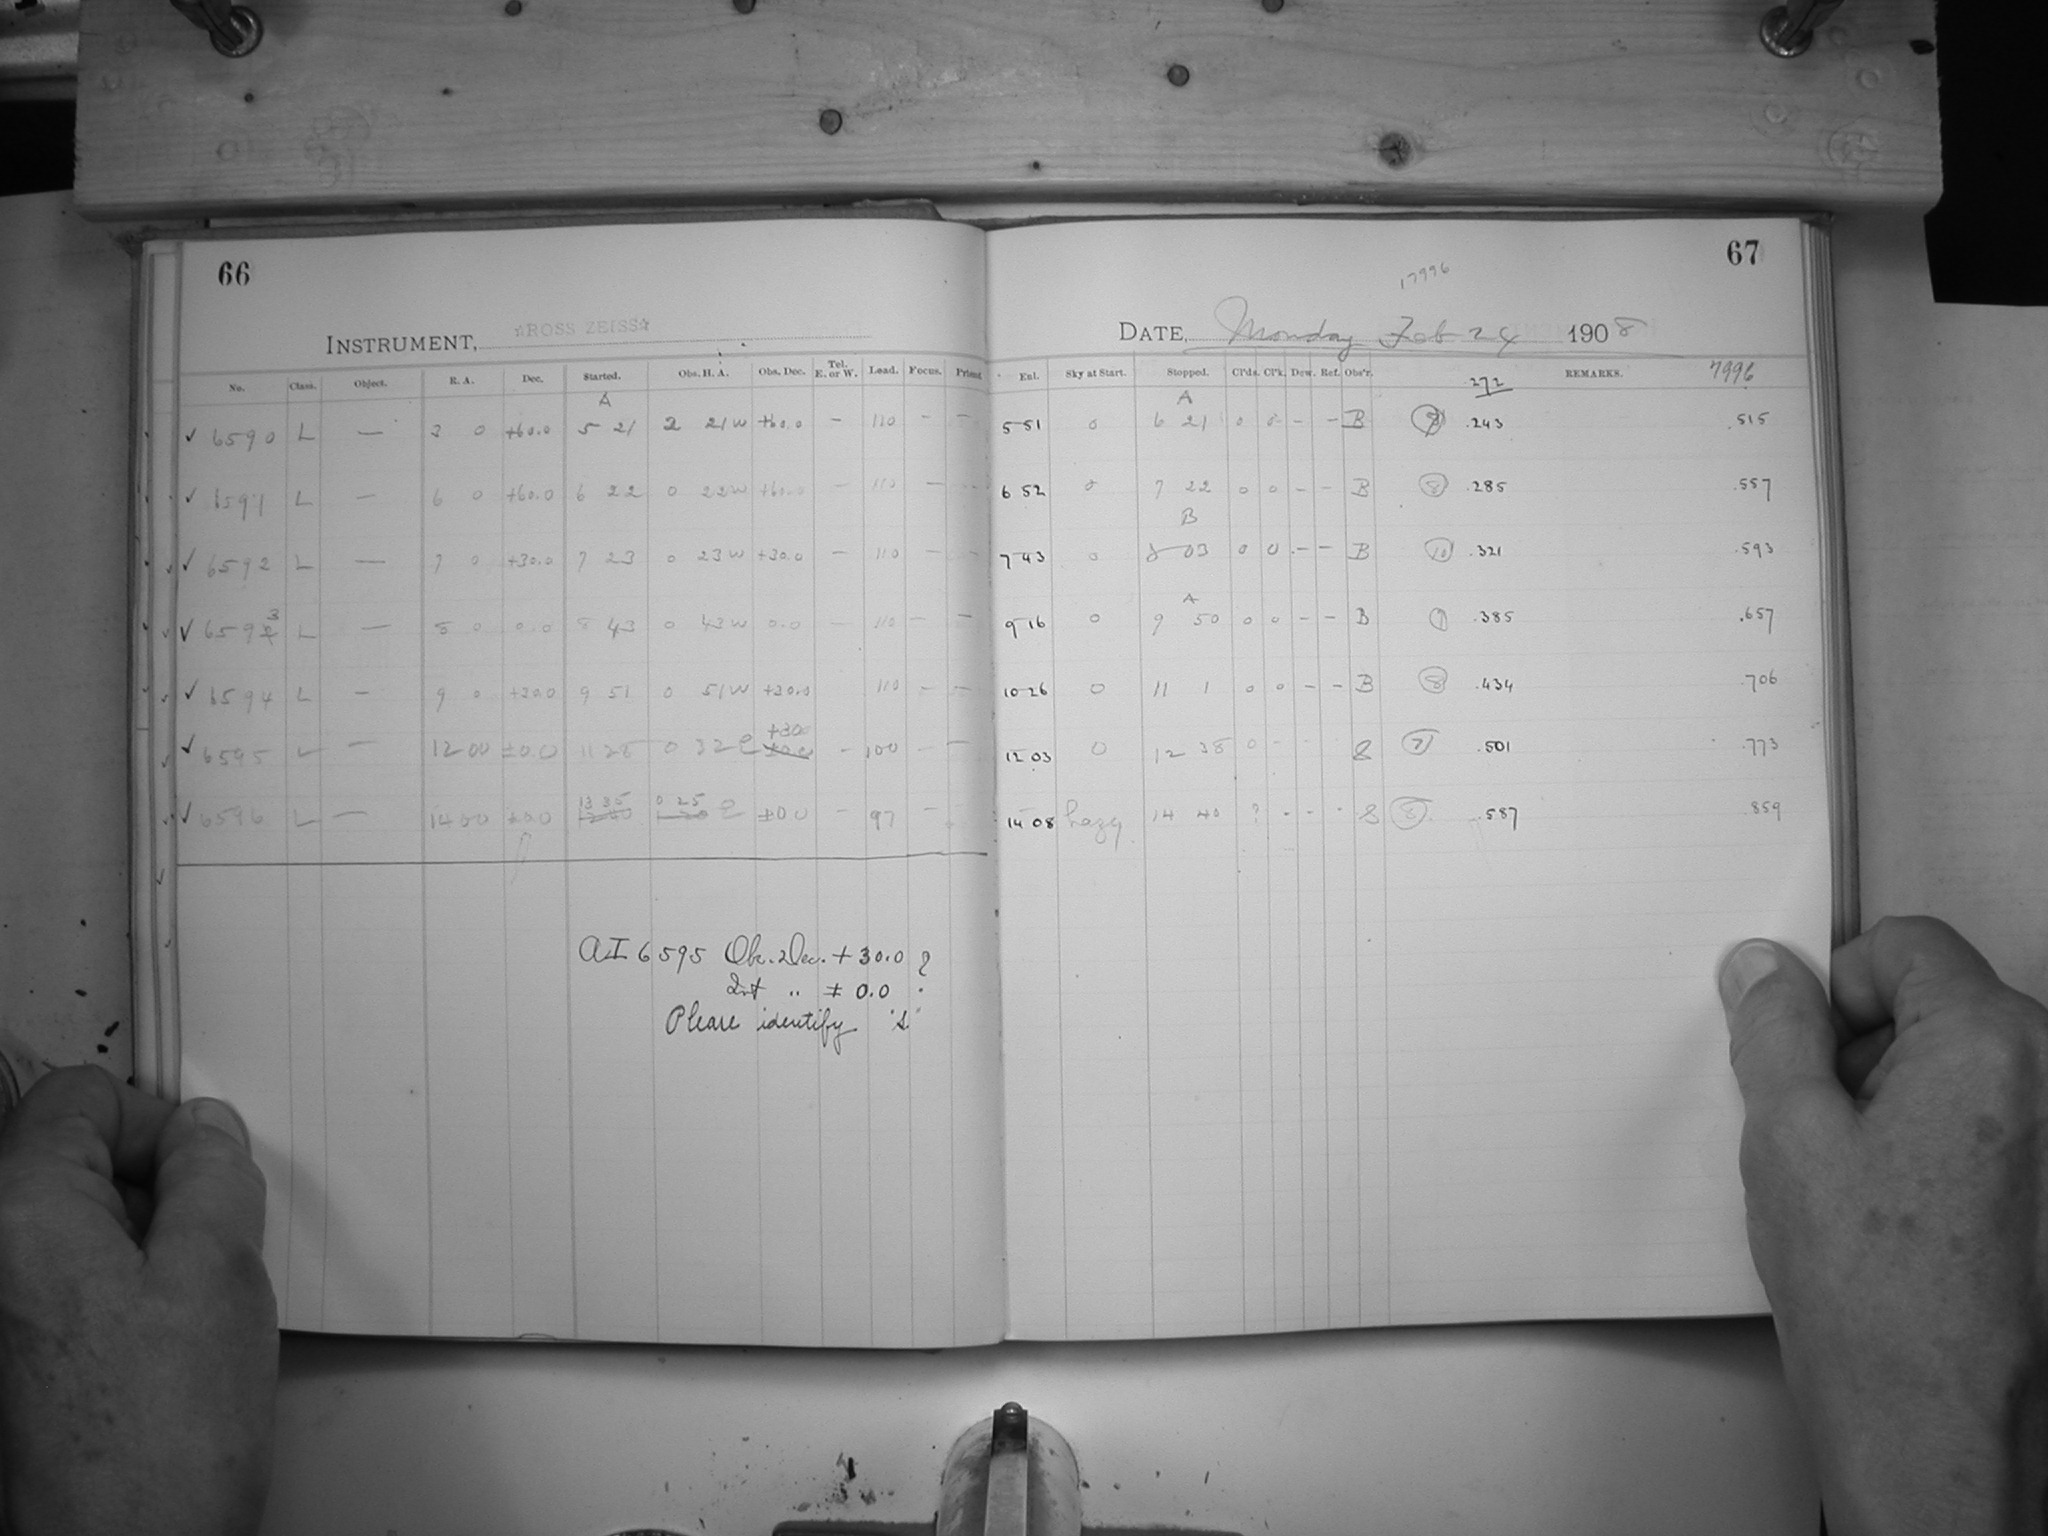 66
INSTRUMENT, ☆ROSS ZEISS☆
No. Class. Object. R. A. Dec. Started. Obs. H. A. Obs. Dec. Tel. E. or W. Lead. Focus.
A
✓ 6590 L — 3 0 +60.0 5 21 2 21 W +60.0 — 110 — —
✓ 6591 L — 6 0 +60.0 6 22 0 22 W +60.0 — 110 — —
✓ 6592 L — 7 0 +30.0 7 23 0 23 W +30.0 — 110 — —
✓ 6593 L — 8 0 0.0 8 43 0 43 W 0.0 — 110 — —
✓ 6594 L — 9 0 +30.0 9 51 0 51 W +30.0 110 — —
+30
✓ 6595 L — 12 00 ±0.0 11 28 0 32 e — 100 — —
13 35 0 25
✓ 6596 L — 14 00 ±0.0 e ±0 0 — 97 —
AI 6595 Obs. Dec. +30.0 ?
Int " ± 0.0
Please identify "S"
67
17996
DATE, Monday Feb 24 1908
Ent. Sky at Start. Stopped. Cl'ds. Cl'k. Dew. Ref. Obs'r. .272 REMARKS. 7996
A
5 51 0 6 21 0 0 – – B .243 .515
6 52 0 7 22 0 0 – – B 8 .285 .557
B
7 43 0 8 03 0 0 – – B 10 .321 .593
A
9 16 0 9 50 0 0 – – B 9 .385 .657
10 26 0 11 1 0 0 – – B 8 .434 .706
12 03 0 12 38 0 - S 7 .501 .773
14 08 hazy 14 40 ? - - - S 8 .587 .859